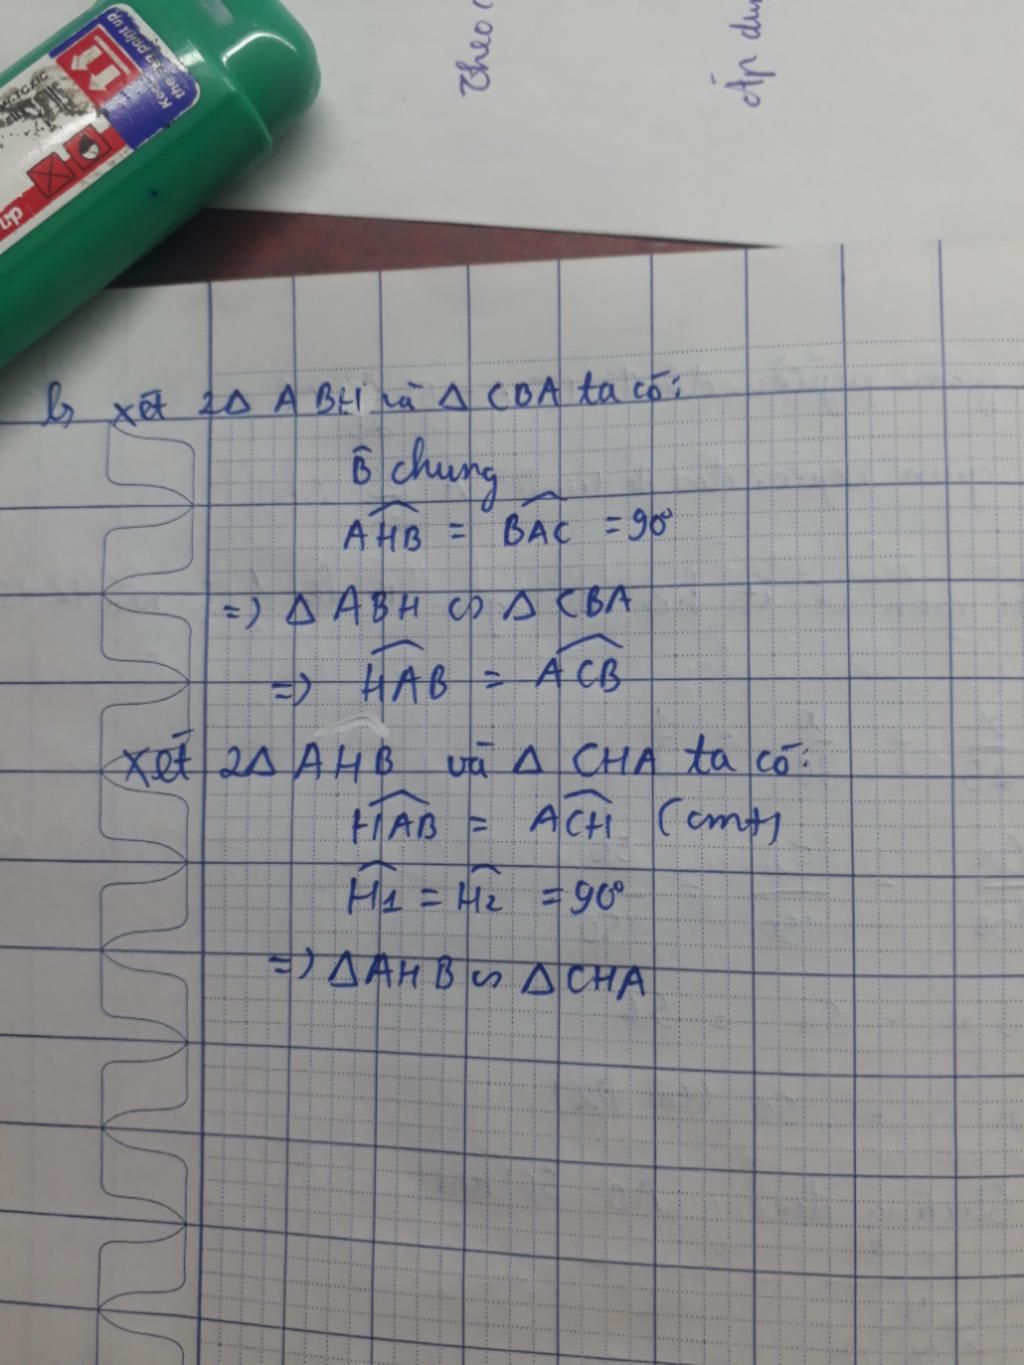 Theo
Áp
Keep
the pen point up
up
b, Xét 2Δ ABH và Δ CBA ta có:
B̂ chung
AHB = BAC = 90°
=) Δ ABH ∽ Δ CBA
=) HAB = ACB
Xét 2Δ AHB và Δ CHA ta có:
HAB = ACH (cmt)
H1 = H2 = 90°
=) ΔAHB ∽ ΔCHA